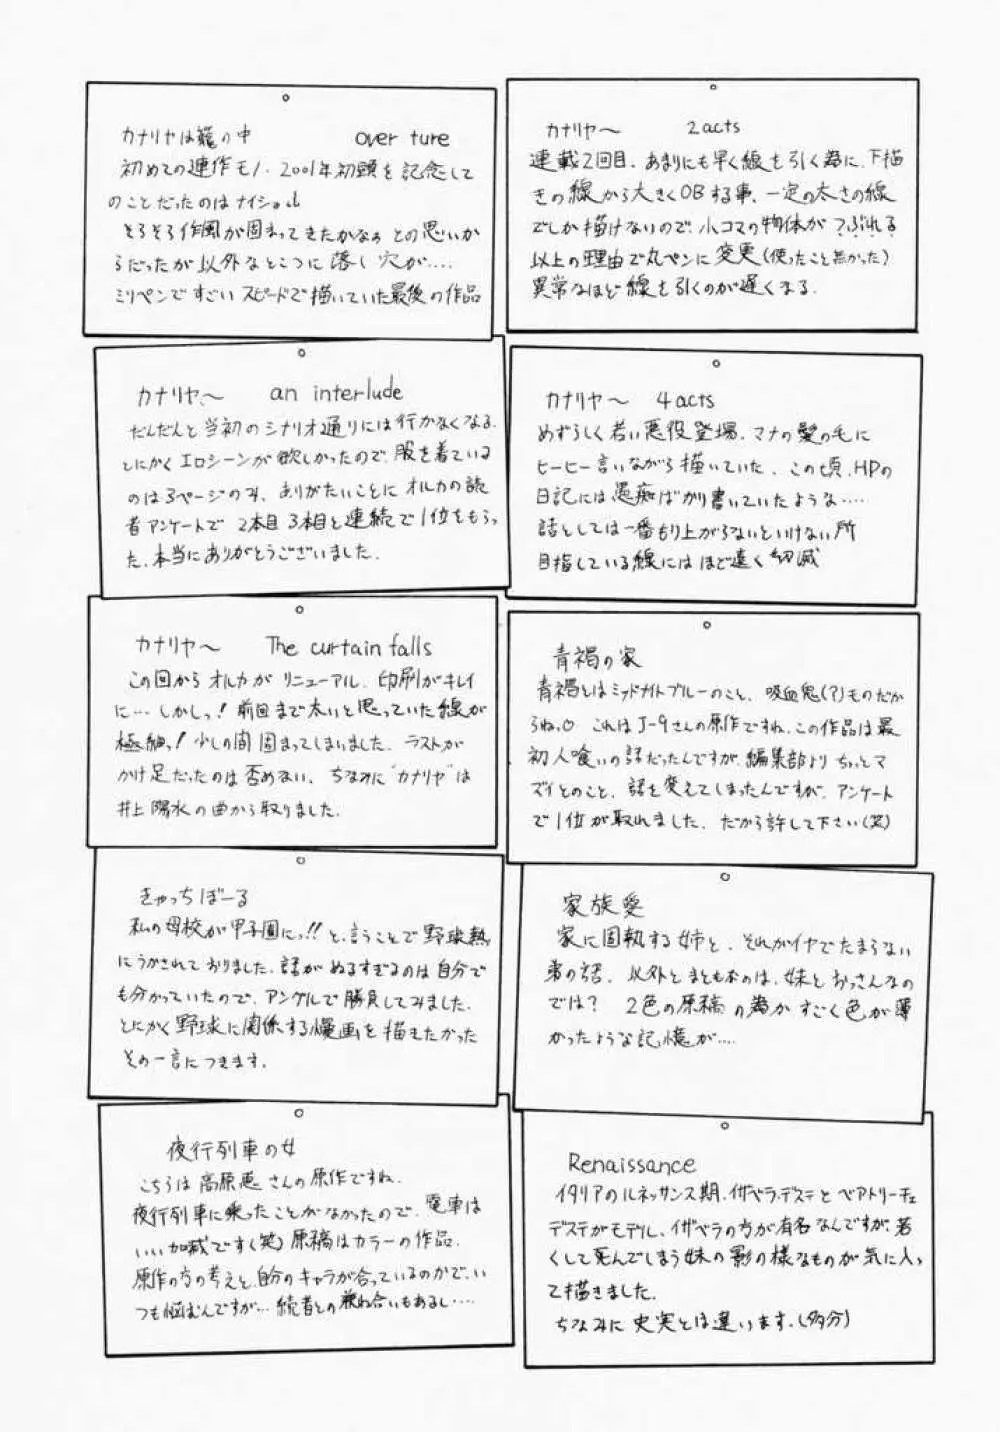 カナリヤは籠の中 over ture
初めての連作モノ. 2001年初頭を記念して
のことだったのはナイショ。
そろそろ作風が固まってきたかなぁ との思いか
らだったが以外なところに落し穴が....
ミリペンですごいスピードで描いていた最後の作品
カナリヤ〜 2acts
連載2回目. あまりにも早く線を引く為に、下描
きの線から大きくOBする事、一定の太さの線
でしか描けないので、小コマの物体がつぶれる
以上の理由で丸ペンに変更(使ったこと無かった)
異常なほど線を引くのが遅くなる.
カナリヤ〜 an interlude
だんだんと当初のシナリオ通りには行かなくなる.
とにかくエロシーンが欲しかったので、服を着ている
のは3ページのみ、ありがたいことにオルカの読
者アンケートで 2本目 3本目と連続で1位をもらっ
た. 本当にありがとうございました.
カナリヤ〜 4acts
めずらしく若い悪役登場. マナの髪の毛に
ヒーヒー言いながら描いていた. この頃.HPの
日記には愚痴ばかり書いていたような....
話としては一番もり上がらないといけない所
目指している線にはほど遠く 幻滅
カナリヤ〜 The curtain falls
この回からオルカがリニューアル. 印刷がキレイ
に… しかしっ! 前回まで太いと思っていた線が
極細っ! 少しの間固まってしまいました. ラストが
かけ足だったのは否めない. ちなみに"カナリヤ"は
井上陽水の曲から取りました.
青褐の家
青褐とはミッドナイトブルーのこと、吸血鬼(?)ものだか
らねっ♡ これはJ-9さんの原作ですね. この作品は最
初人喰いの話だったんですが、編集部よりちょっとマ
ズイとのこと、話を変えてしまったんですが、アンケート
で1位が取れました. だから許して下さい(笑)
きゃっちぼーる
私の母校が甲子園にっ!! と、言うことで野球熱
にうかされておりました. 話がぬるすぎるのは自分で
も分かっていたので、アングルで勝負してみました.
とにかく野球に関係する漫画を描きたかった
その一言につきます.
家族愛
家に固執する姉と、それがイヤでたまらない
弟の話. 以外とまともなのは、妹とおっさんなの
では? 2色の原稿の為かすごく色が薄
かったような記憶が....
夜行列車の女
こちらは高原恵さんの原作ですね.
夜行列車に乗ったことがなかったので、電車は
いい加減です(笑) 原稿はカラーの作品.
原作の方の考えと、自分のキャラが合っているのかで、い
つも悩むんですが… 読者との兼ね合いもあるし....
Renaissance
イタリアのルネッサンス期. イザベラ.デステとベアトリーチェ
デステがモデル. イザベラの方が有名なんですが、若
くして死んでしまう妹の影の様なものが気に入っ
て描きました.
ちなみに史実とは違います.(多分)